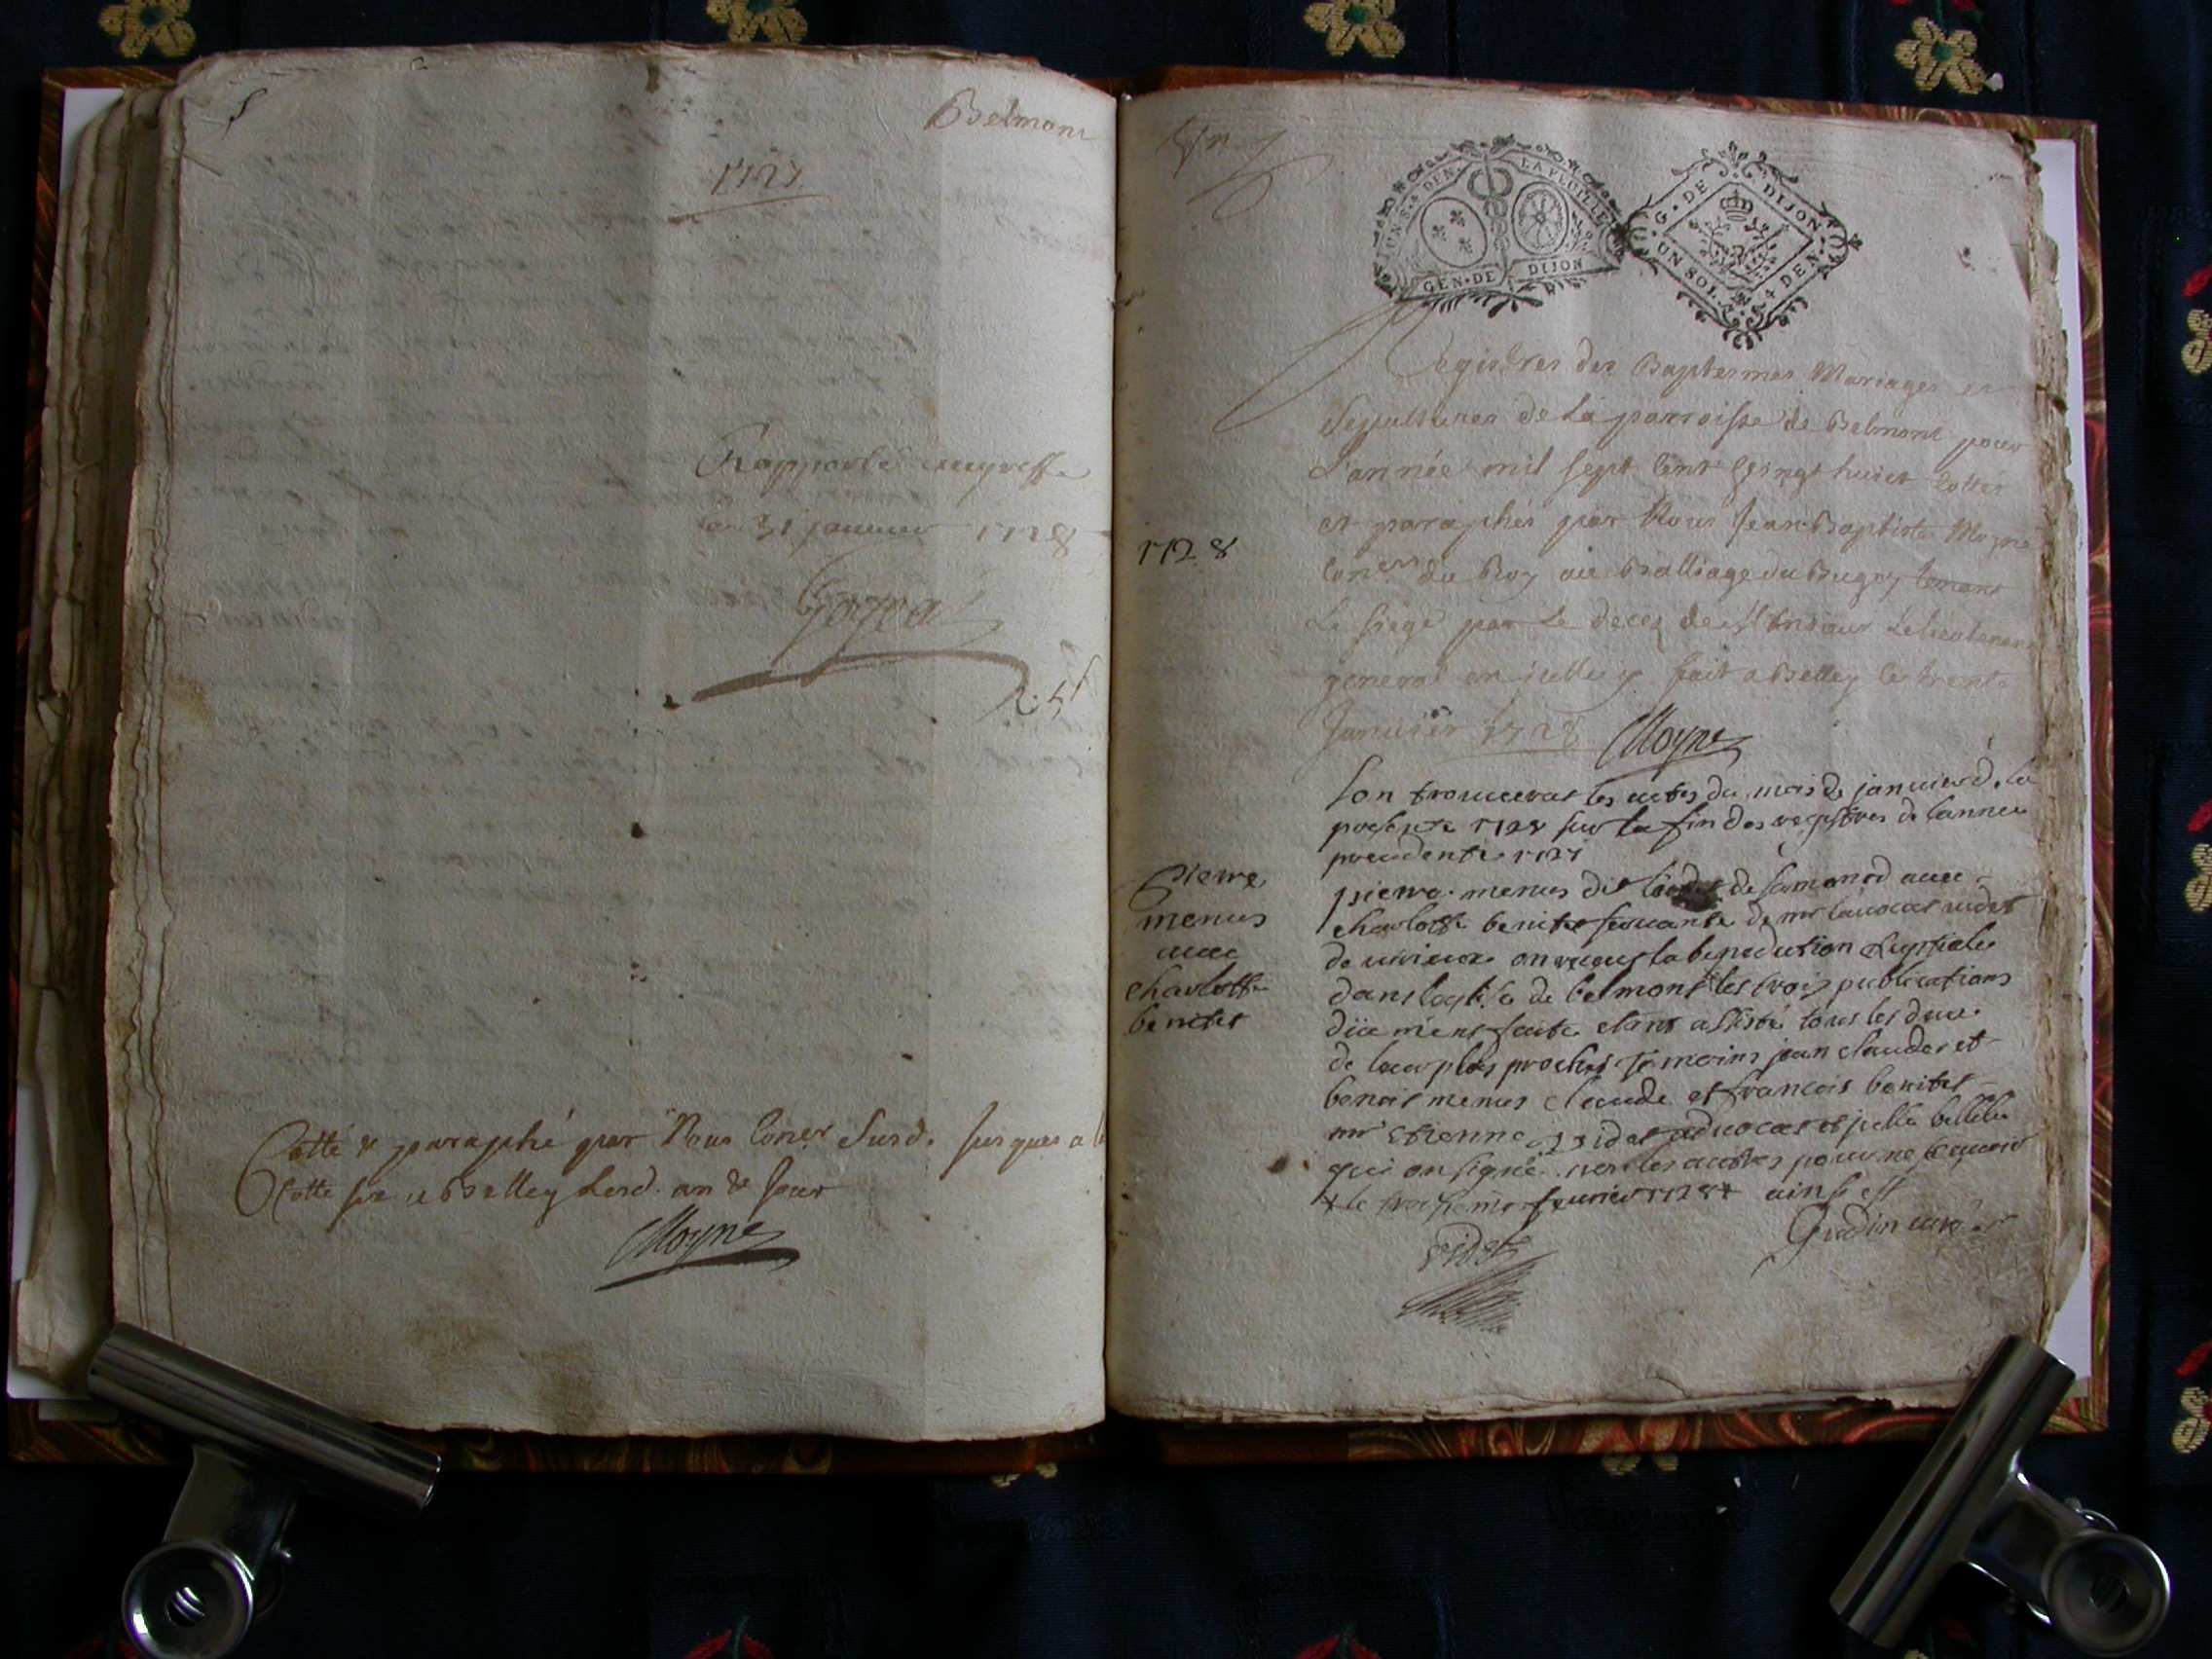 Belmont
1727
Rapporté au greffe
le 31 janvier 1728
Cotté & paraphé par Nous Coner Susd. jusques a la
Cotte six, a Belley Lesd. an & jour
Moyne
Un
SIUNS. 4 DEN. LA FEUILLE
GEN. DE DIJON
G. DE DIJON
UN SOL. 4 DEN.
Registres des Baptesmes Mariages et
Sepultures de la parroisse de Belmont pour
L'année mil sept cent vingt huict Cottés
et paraphés par Nous Jean Baptiste Moyne
1728
Coner du Roy au Balliage du Bugey tenant
Le siege par le decez de Monsieur Le lieutenant
general en icelluy fait a Belley le trente
Janvier 1728 Moyne
lon trouverat les actes du mois de janvier de la
presente 1728 sur la fin des registres de lannee
precedente 1727
Pierre
menus
avec
charlotte
benitet
pierre menus dit de samonod avec
charlotte benitet servante de mr lavocat videt
de virieux on receus la benediction nuptiale
dans leglise de belmont les trois publications
düement faite etant assisté tous les deux
de leur plus proches temoins jean claude et
benoit menus claude et francois benitet
mr etienne videt advocat et
qui on signé non les autres pour ne scavoir
+ le troisieme fevrier 1728 + ainsi est
Gudin curé
Videt